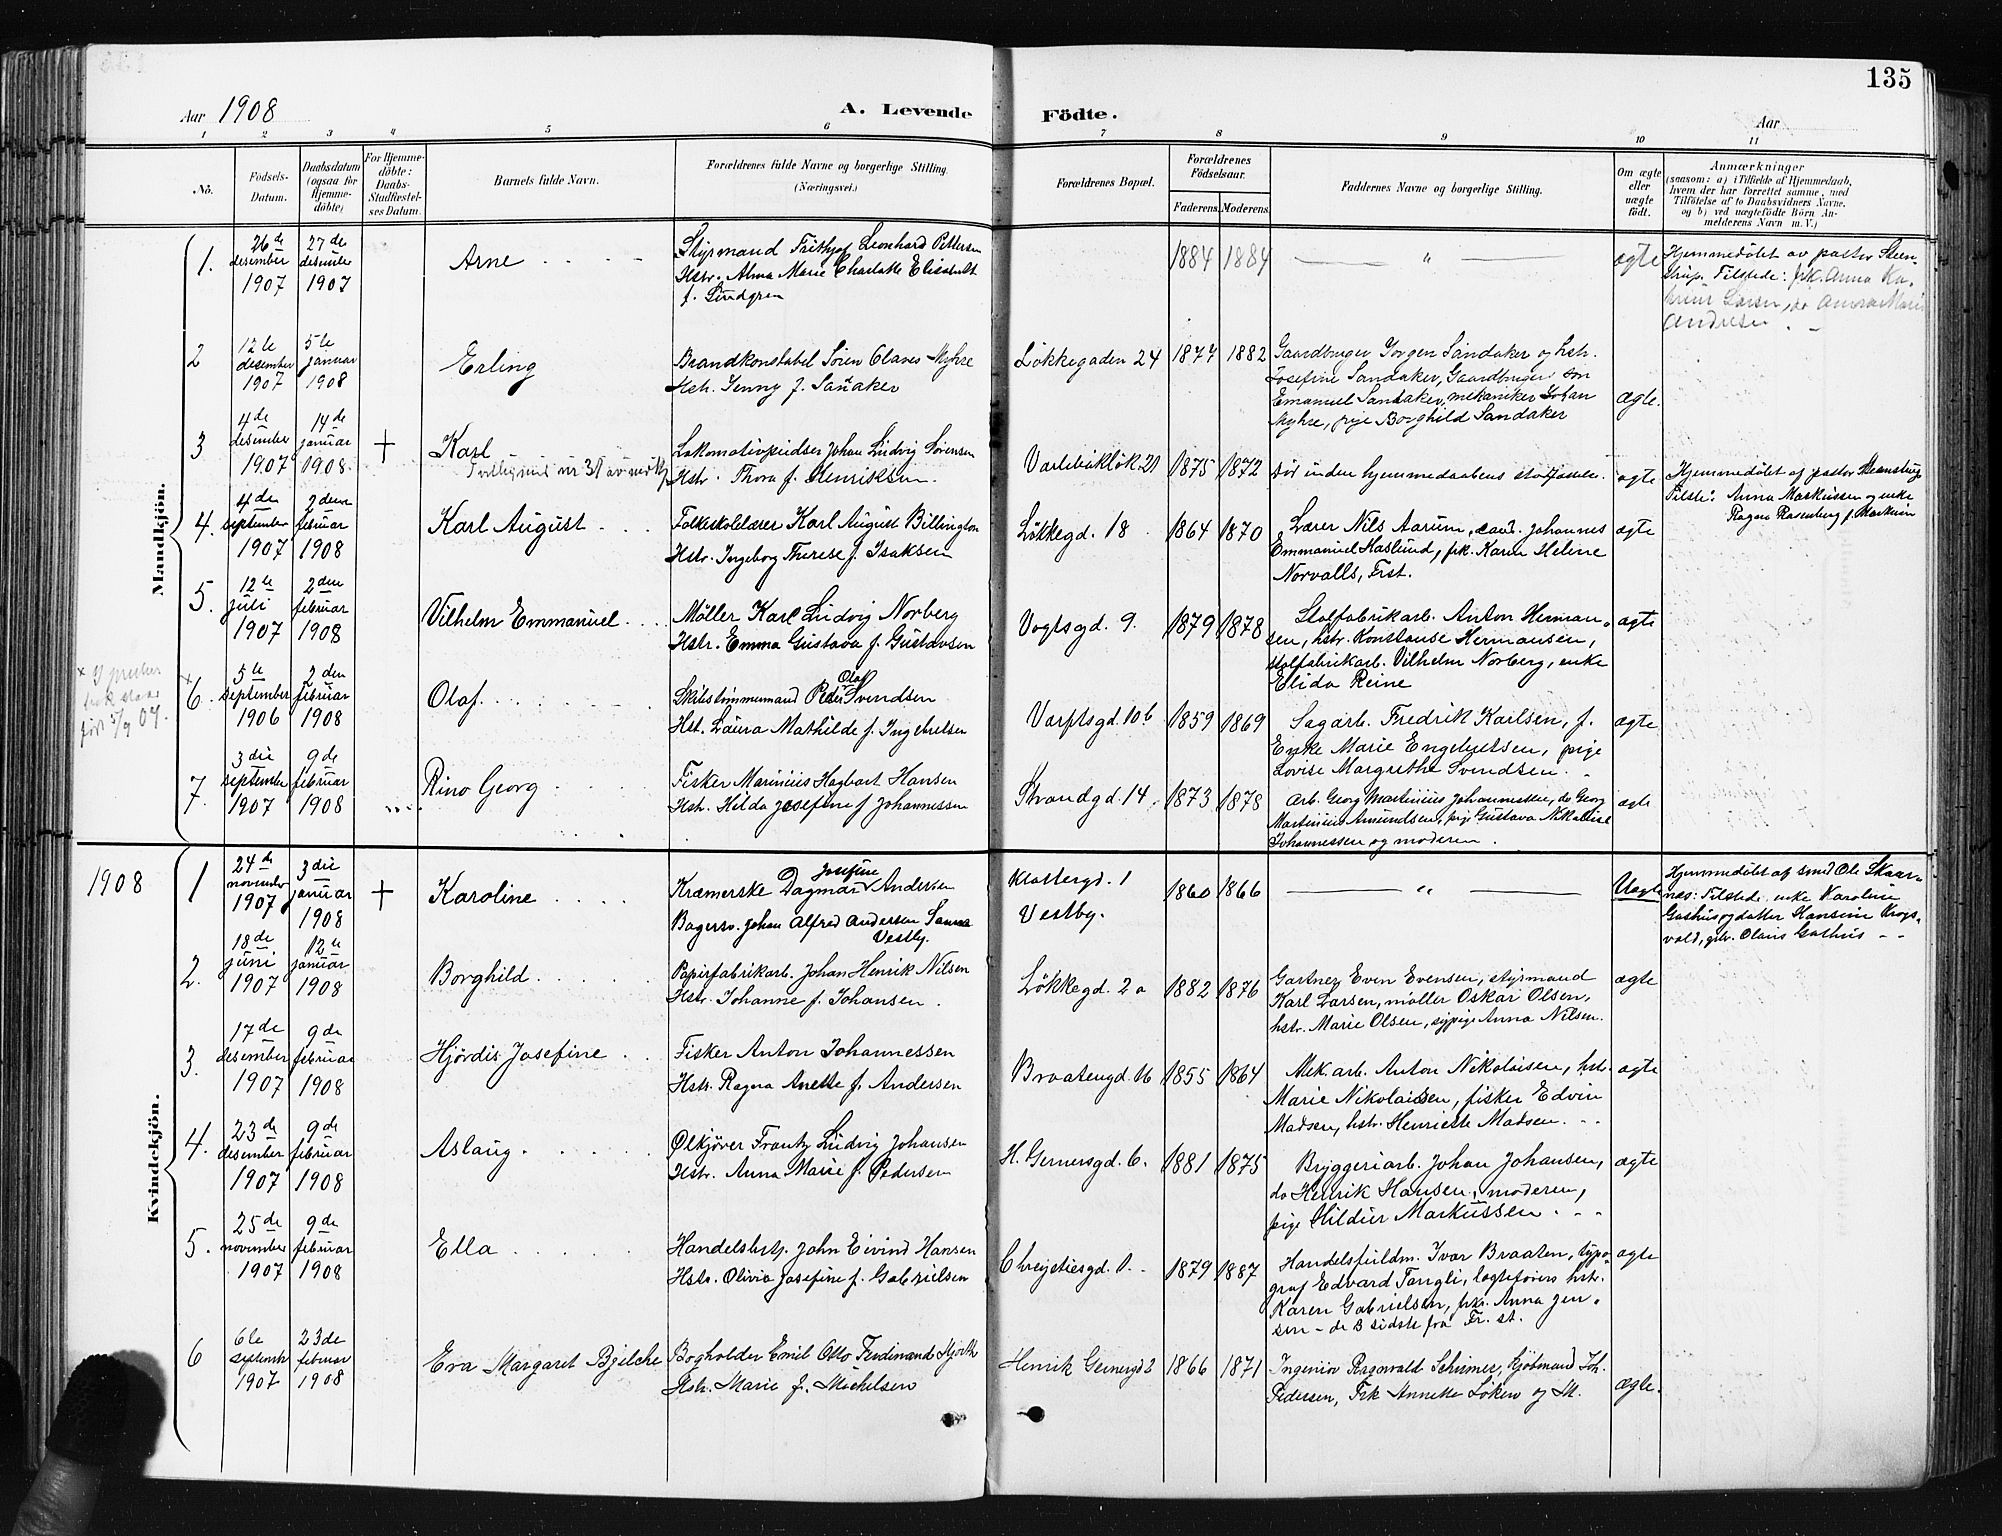 135
Aar 1908
A. Levende
Födte.
Aar
1 2 3 4 5 6 7 8 9 10 11
No.
Födsels-
Datum.
Daabsdatum
(ogsaa for
Hjemme-
döbte)
For Hjemme-
döbte:
Daabs-
Stadfæstel-
ses Datum.
Barnets fulde Navn.
Forældrenes fulde Navne og borgerlige Stilling.
(Næringsvei.)
Forældrenes Bopæl.
Forældrenes
Födselsaar.
Faderens. Moderens.
Faddernes Navne og borgerlige Stilling.
Om ægte
eller
uægte
födt.
Anmærkninger
(saasom: a) i Tilfælde af Hjemmedaab,
hvem der har forrettet samme, med
Tilföielse af to Daabsvidners Navne,
og b) ved uægtefödte Börn An-
melderens Navn m. V.)
Mandkjön.
1.
26de
desember
1907
27de
desember
1907
Arne
Styrmand Frithjof Leonhard Pettersen
Hstr. Alma Marie Charlotte Elisabeth
f. Lindgren
1884 1884
"
ægte
Hjemmedøbt av pastor Steen
strup. Tilstede: frk. Anna Ka
Larsen, do Anna Marie
Andresen
2
12te
desember
1907
5te
januar
1908
Erling
Brandkonstabel Søren Olaves Myhre
Hstr. Jenny f. Sandaker
Løkkegaden 24
1877 1882
Gaardbruger Jørgen Sandaker og hstr.
Josefine Sandaker, Gaardbruger søn
Emanuel Sandaker, mekaniker Johan
Myhre, pige Borghild Sandaker
ægte.
3
4de
desember
1907
14de
januar
1908
†
Karl
Lokomotivpudser Johan Ludvig Sørensen
Hstr. Thora f. Henriksen.
Varlebækløk. 21
1875 1872
Dør inden hjemmedaabens
ægte
Hjemmedøbt af pastor Steenstrup
Tilste: Anna Markussen og enke
Ragna Rosenberg f. Markusen
4.
4de
september
1907
2den
februar
1908
Karl August
Folkeskolelærer Karl August Billington
Hstr. Ingeborg Therese f. Isaksen
Løkkegd. 18
1864 1870
Lærer Nils Aarum, cand. Johannes
Emmanuel Haslund, frk. Karen Heline
Norvalls, Frst.
ægte
5.
12te
juli
1907
2den
februar
1908
Vilhelm Emmanuel
Møller Karl Ludvig Norberg
Hstr. Emma Gustava f. Gustavsen
Vogtsgd. 9.
1879 1878
Stolfabrikarb. Anton Herman-
sen, hstr. Konstanse Hermansen,
stolfabrikarb. Vilhelm Norberg, enke
Elida Reine
ægte
født 5/9 07.
6.
5te
september
1906
2den
februar
1908
Olaf
Olaf
Skibstømmermand Peder Svendsen
Hst. Laura Mathilde f. Ingebretsen
Varftsgd. 10b
1859 1869
Sagarb. Fredrik Karlsen, f.
Enke Marie Engebretsen, pige
Lovise Margrethe Svendsen.
ægte
7.
3die
september
1907
9de
februar
1908
Rino Georg
Fisker Marinius Hagbart Hansen
Hstr. Hilda Josefine f. Johannessen
Strandgd. 14
1873 1878
Arb. Georg Martinius Johannessen, do Georg
Martinius Amundsen, pige Gustava Nikoline
Johannessen og moderen.
ægte
1908
Kvindekjön.
1
24de
november
1907
3die
januar
1908
†
Karoline
Josefine
Kræmerske Dagmar Andersen
Bagersv. Johan Alfred Andersen Sanna
Vestby.
Klostergd. 1
Vestby.
1860 1866
"
Uægte
Hjemmedøbt af smed Ole Skaar-
næs: Tilstede enke Karoline
Gashus og datter Hansine Krogs-
vold, gbr. Olaus Gashus
2.
18de
juni
1907
12te
januar
1908
Borghild
Papirfabrikarb. Johan Henrik Nilsen
Hstr. Johanne f. Johansen.
Løkkegd. 2a
1882 1876
Gartner Even Evensen, styrmand
Karl Larsen, møller Oskar Olsen,
hstr. Marie Olsen, sypige Anna Nilsen.
ægte
3.
17de
desember
1907
9de
februar
1908
Hjørdis Josefine
Fisker Anton Johannessen
Hstr. Ragna Anette f. Andersen
Braatengd. 16
1855 1864
Mek. arb. Anton Nikolaisen, hstr.
Marie Nikolaisen, fisker Edvin
Madsen, hstr. Henriette Madsen.
ægte
4.
23de
desember
1907
9de
februar
1908
Aslaug
Ølkjører Frantz Ludvig Johansen
Hstr. Anna Marie f. Pedersen
H. Gernersgd. 6.
1881 1875
Bryggeriarb. Johan Johansen,
do Henrik Hansen, moderen,
pige Hildur Markussen.
ægte
5.
25de
november
1907
9de
februar
1908
Ella
Handelsbetj. John Eivind Hansen
Hstr. Olivia Josefine f. Gabrielsen
Chrystiesgd. 1.
1879 1887
Handelsfuldm. Ivar Braaten, typo-
graf Edvard Tangli, lagtførers hstr.
Karen Gabrielsen, frk. Anna Jen-
sen - de 3 sidste fra Fr. st.
ægte
6
6te
septembr
1907
23de
februar
1908
Eva Margaret Bjelche
Bogholder Emil Otto Ferdinand Hjorth
Hstr. Marie f. Michelsen
Henrik Gernergd 2
1866 1871
Ingeniør Ragnvald Schirmer, Kjøbmand Joh.
Pedersen, Frk Annette Løken og M.
ægte.